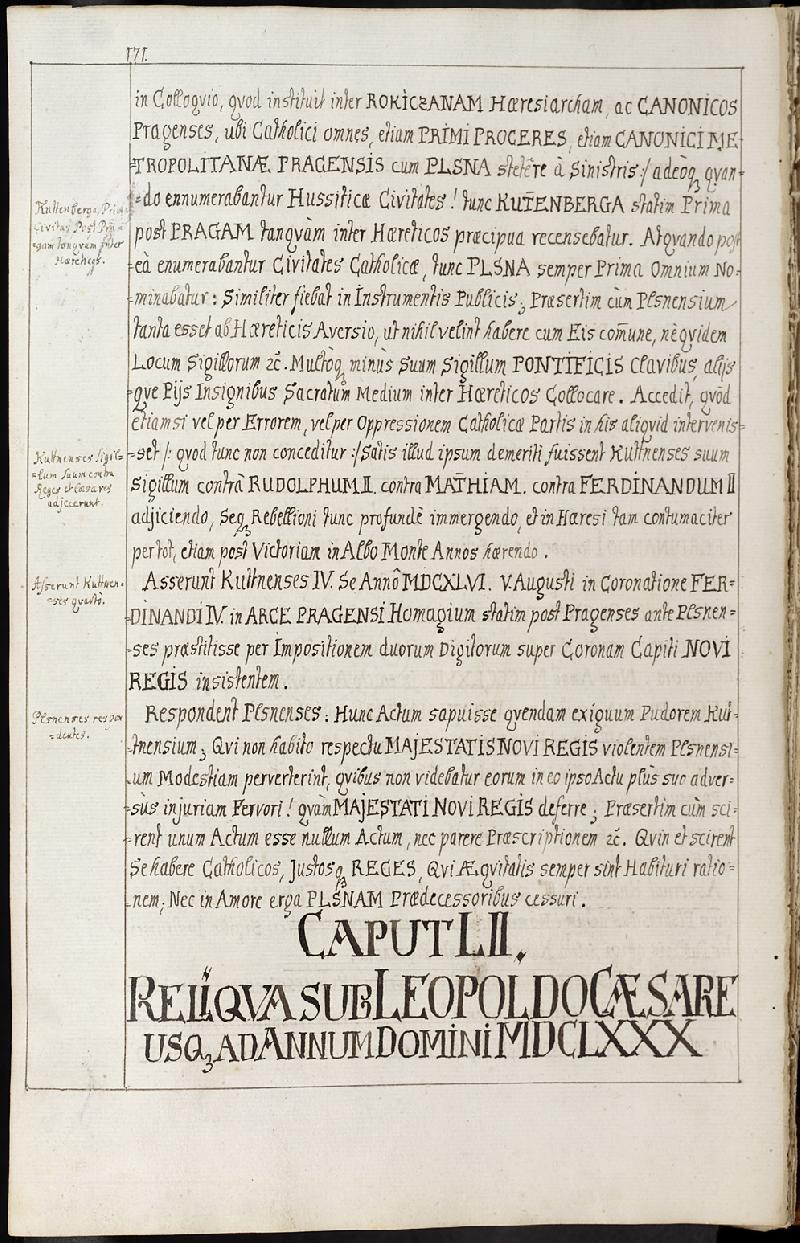 171.
in Colloqvio, qvod instituit inter ROKICZANAM Hæresiarcham, ac CANONICOS
Pragenses, ubi Catholici omnes, etiam PRIMI PROCERES, etiam CANONICI ME=
=TROPOLITANÆ PRAGENSIS cum PLSNA stetêre à Sinistris :/ adeoq₃ qvan=
=do ennumerabantur Hussiticæ Civitates ! tunc KUTENBERGA statim Prima
post PRAGAM tanqvàm inter Hæreticos præcipua recensebatur. At qvando post
eà enumerabantur Civitates Catholicæ, tunc PLSNA semper Prima Omnium No=
=minabatur : Similiter fiebat in Instrumentis Publicis ; Præsertim cùm Plsnensium
tanta esset ab Hæreticis Aversio, ut nihil velint habere cum Eis com̄une, nè qvidem
Locum Sigillorum ꝛc. Multoq₃ minùs Suum Sigillum PONTIFICIS Clavibus, alijs
=qve Pijs Insignibus Sacratum Medium inter Hæreticos Collocare. Accedit, qvòd
etiamsi vel per Errorem, vel per Oppressionem Catholicæ Partis in his aliqvid intervenis=
=set /: qvod tunc non conceditur :/ Satis illud ipsum demeriti fuissent Kuttnenses suum
Sigillum contrà RUDOLPHUM II. contra MATHIAM. contra FERDINANDUM II
adjiciendo, Seq₃ Rebellioni tunc profundè immergendo, et in Hæresi tam contumaciter
per tot, etiam post Victoriam in Albo Monte Annos hærendo.
Asserunt Kuttnenses IV. Se Annô MDCXLVI. V. Augusti in Coronatione FER=
=DINANDI IV. in ARCE PRAGENSI Homagium statim post Pragenses ante Plsnen=
=ses præstitisse per Impositionem duorum Digitorum super Coronam Capiti NOVI
REGIS insistentem.
Respondent Plsnenses : Hunc Actum sapuisse qvendam exiguum Pudorem Kut=
=tnensium ; Qvi non habito respectu MAJESTATIS NOVI REGIS violentem Plsnensi=
=um Modestiam perverterint, qvibus non videbatur eorum in eo ipso Actu plùs suo adver=
=sùs injuriam Fervori ! qvàm MAJESTATI NOVI REGIS deferre ; Præsertim cùm sci=
=rent unum Actum esse nullum Actum, nec parere Præscriptionem ꝛc. Qvin et scirent
Se habere Catholicos, Justosq₃ REGES, Qvi Æqvitatis semper sint Habituri ratio=
=nem ; Nec in Amore erga PLSNAM Prædecessoribus cessuri.
CAPUT LII.
RELIQVA SUB LEOPOLDO CÆSARE
USQ₃ AD ANNUM DOMINI MDCLXXX
Kuttenberga Prima
Civitas Post Pra=
=gam tanqvàm inter
Hæreticos.
Kuttnenses Sigil=
=lum Suum contra
Reges et Cæsares
adjecerunt.
Asserunt Kuttnen=
=ses qvartò.
Plsnenses respon
=dentes.